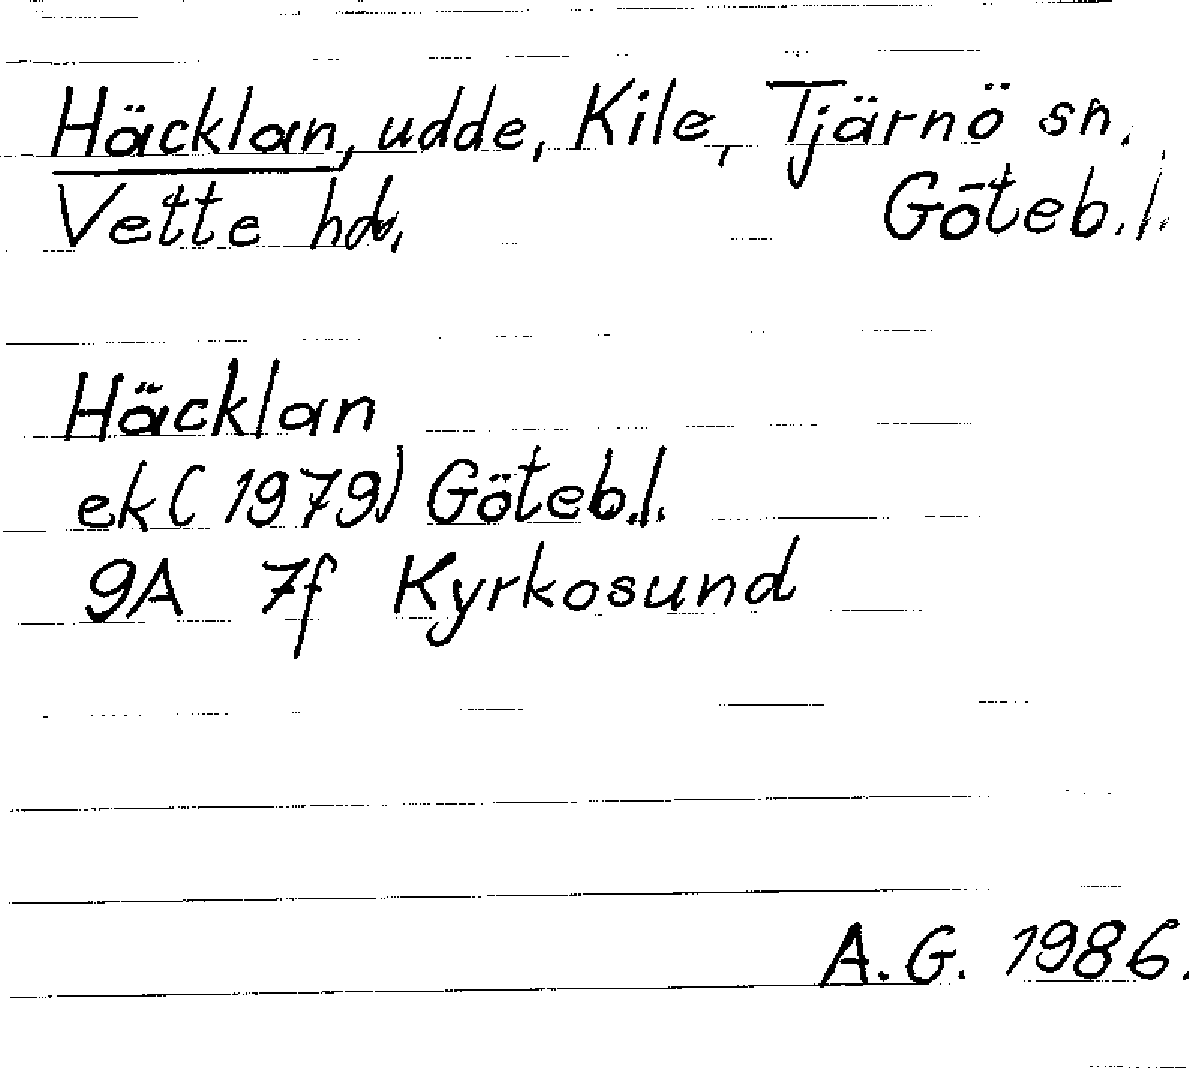 Häcklan, udde, Kile, Tjärnö sn.
Vette hd. Göteb.l.
Häcklan
ek (1979) Göteb.l.
9A 7f Kyrkosund
A.G. 1986.